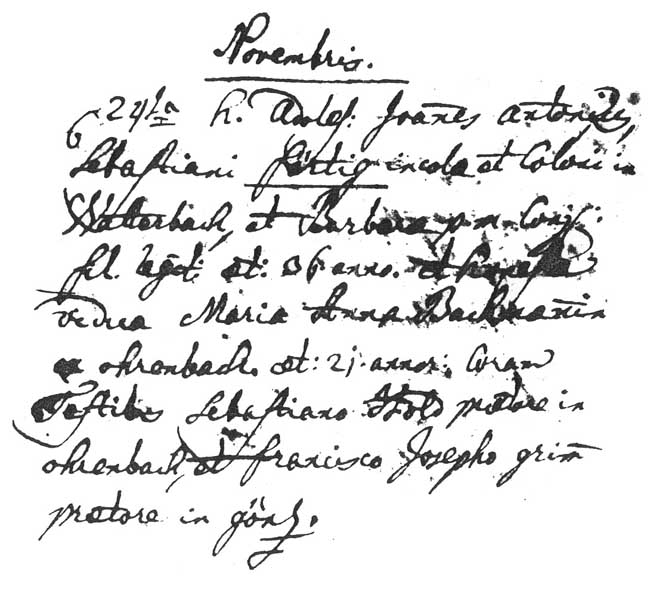 Novembris.
24ta h. Adoles: Joañes Antonius,
Sebastiani Förtig incola et Coloni in
Watterbach, et Barbara p. m. Conj:
fil. legit: æt: 36 anno. et honesta
vidua Maria Anna Bachmañin
ohrenbach æt: 21 annor: Coram
Testibus Sebastiano prætore in
ohrenbach, et Francisco Josepho grim̄
prætore in gönz.